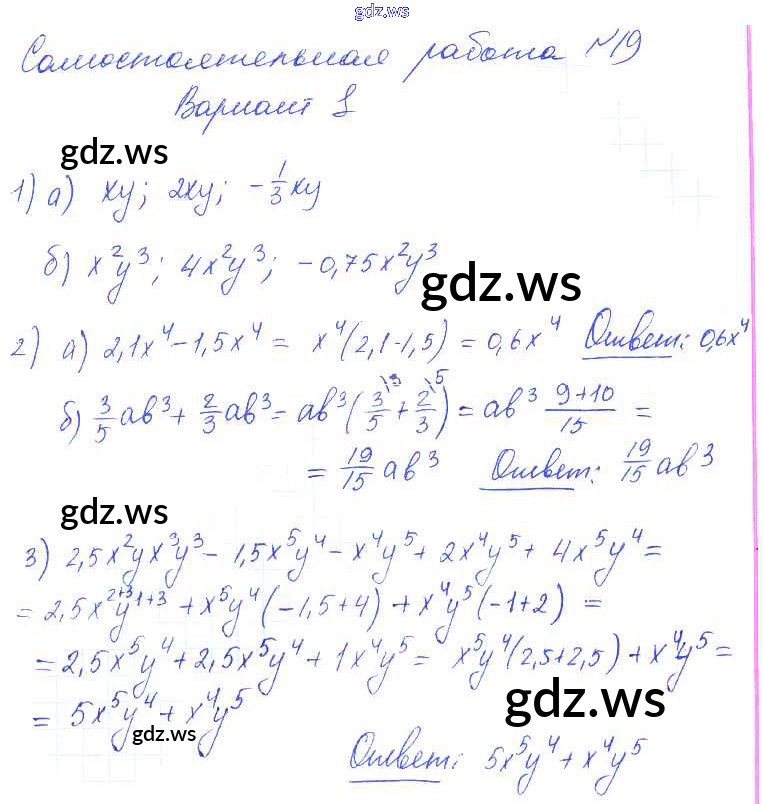 gdz.ws
Самостоятельная работа №19
Вариант 1
gdz.ws
1) а) xy; 2xy; -1/3 xy
б) x²y³; 4x²y³; -0,75x²y³
gdz.ws
2) а) 2,1x⁴-1,5x⁴ = x⁴(2,1-1,5) = 0,6x⁴ Ответ: 0,6x⁴
б) 3/5 ab³ + 2/3 ab³ = ab³(3/5\3 + 2/3\5) = ab³ (9+10)/15 =
= 19/15 ab³ Ответ: 19/15 ab³
gdz.ws
3) 2,5x²yx³y³ - 1,5x⁵y⁴ - x⁴y⁵ + 2x⁴y⁵ + 4x⁵y⁴ =
= 2,5x²⁺³y¹⁺³ + x⁵y⁴(-1,5+4) + x⁴y⁵(-1+2) =
= 2,5x⁵y⁴ + 2,5x⁵y⁴ + 1x⁴y⁵ = x⁵y⁴(2,5+2,5) + x⁴y⁵ =
= 5x⁵y⁴ + x⁴y⁵
gdz.ws
gdz.ws
Ответ: 5x⁵y⁴ + x⁴y⁵